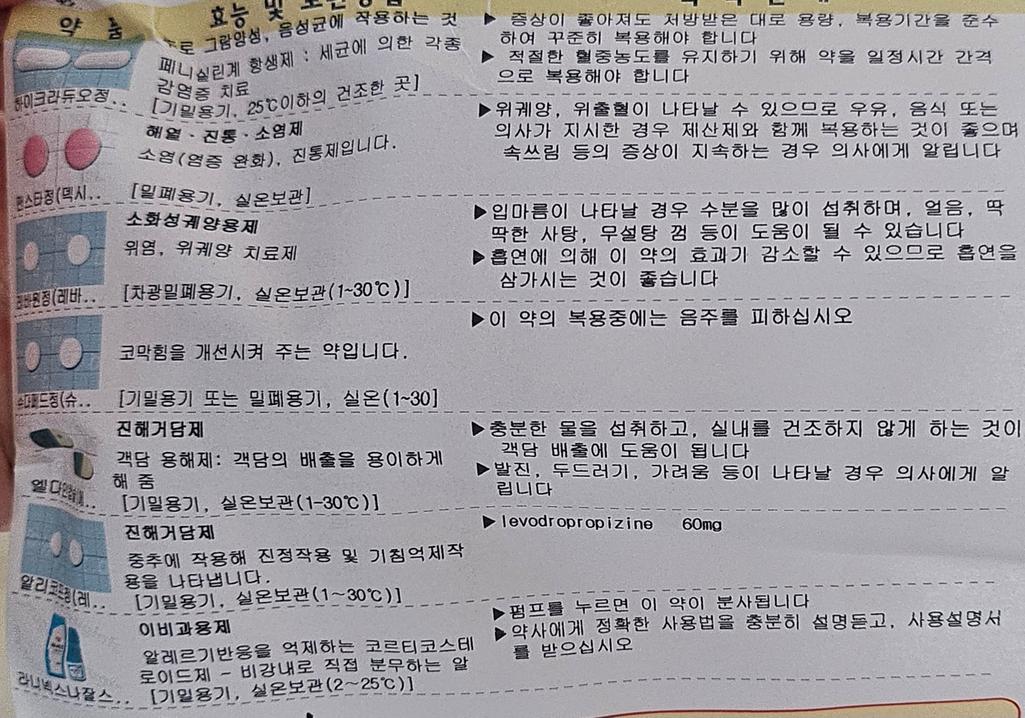 약 품
효능 및 보관방법
그람양성, 음성균에 작용하는 것
페니실린계 항생제 : 세균에 의한 각종
감염증 치료
[기밀용기, 25℃이하의 건조한 곳]
하이크라듀오정..
▶ 증상이 좋아져도 처방받은 대로 용량, 복용기간을 준수
하여 꾸준히 복용해야 합니다
▶ 적절한 혈중농도를 유지하기 위해 약을 일정시간 간격
으로 복용해야 합니다
해열·진통·소염제
소염(염증 완화), 진통제입니다.
[밀폐용기, 실온보관]
펜스타정(덱시..
▶위궤양, 위출혈이 나타날 수 있으므로 우유, 음식 또는
의사가 지시한 경우 제산제와 함께 복용하는 것이 좋으며
속쓰림 등의 증상이 지속하는 경우 의사에게 알립니다
소화성궤양용제
위염, 위궤양 치료제
[차광밀폐용기, 실온보관(1~30℃)]
레바원정(레바..
▶입마름이 나타날 경우 수분을 많이 섭취하며, 얼음, 딱
딱한 사탕, 무설탕 껌 등이 도움이 될 수 있습니다
▶흡연에 의해 이 약의 효과가 감소할 수 있으므로 흡연을
삼가시는 것이 좋습니다
코막힘을 개선시켜 주는 약입니다.
[기밀용기 또는 밀폐용기, 실온(1~30]
슈다페드정(슈..
▶이 약의 복용중에는 음주를 피하십시오
진해거담제
객담 용해제: 객담의 배출을 용이하게
해 줌
[기밀용기, 실온보관(1-30℃)]
엘다인캡슐(에..
▶충분한 물을 섭취하고, 실내를 건조하지 않게 하는 것이
객담 배출에 도움이 됩니다
▶발진, 두드러기, 가려움 등이 나타날 경우 의사에게 알
립니다
진해거담제
중추에 작용해 진정작용 및 기침억제작
용을 나타냅니다.
[기밀용기, 실온보관(1~30℃)]
알리코프정(레..
▶levodropropizine 60mg
이비과용제
알레르기반응을 억제하는 코르티코스테
로이드제 - 비강내로 직접 분무하는 알
[기밀용기, 실온보관(2~25℃)]
라니넥스나잘스..
▶펌프를 누르면 이 약이 분사됩니다
▶약사에게 정확한 사용법을 충분히 설명듣고, 사용설명서
를 받으십시오